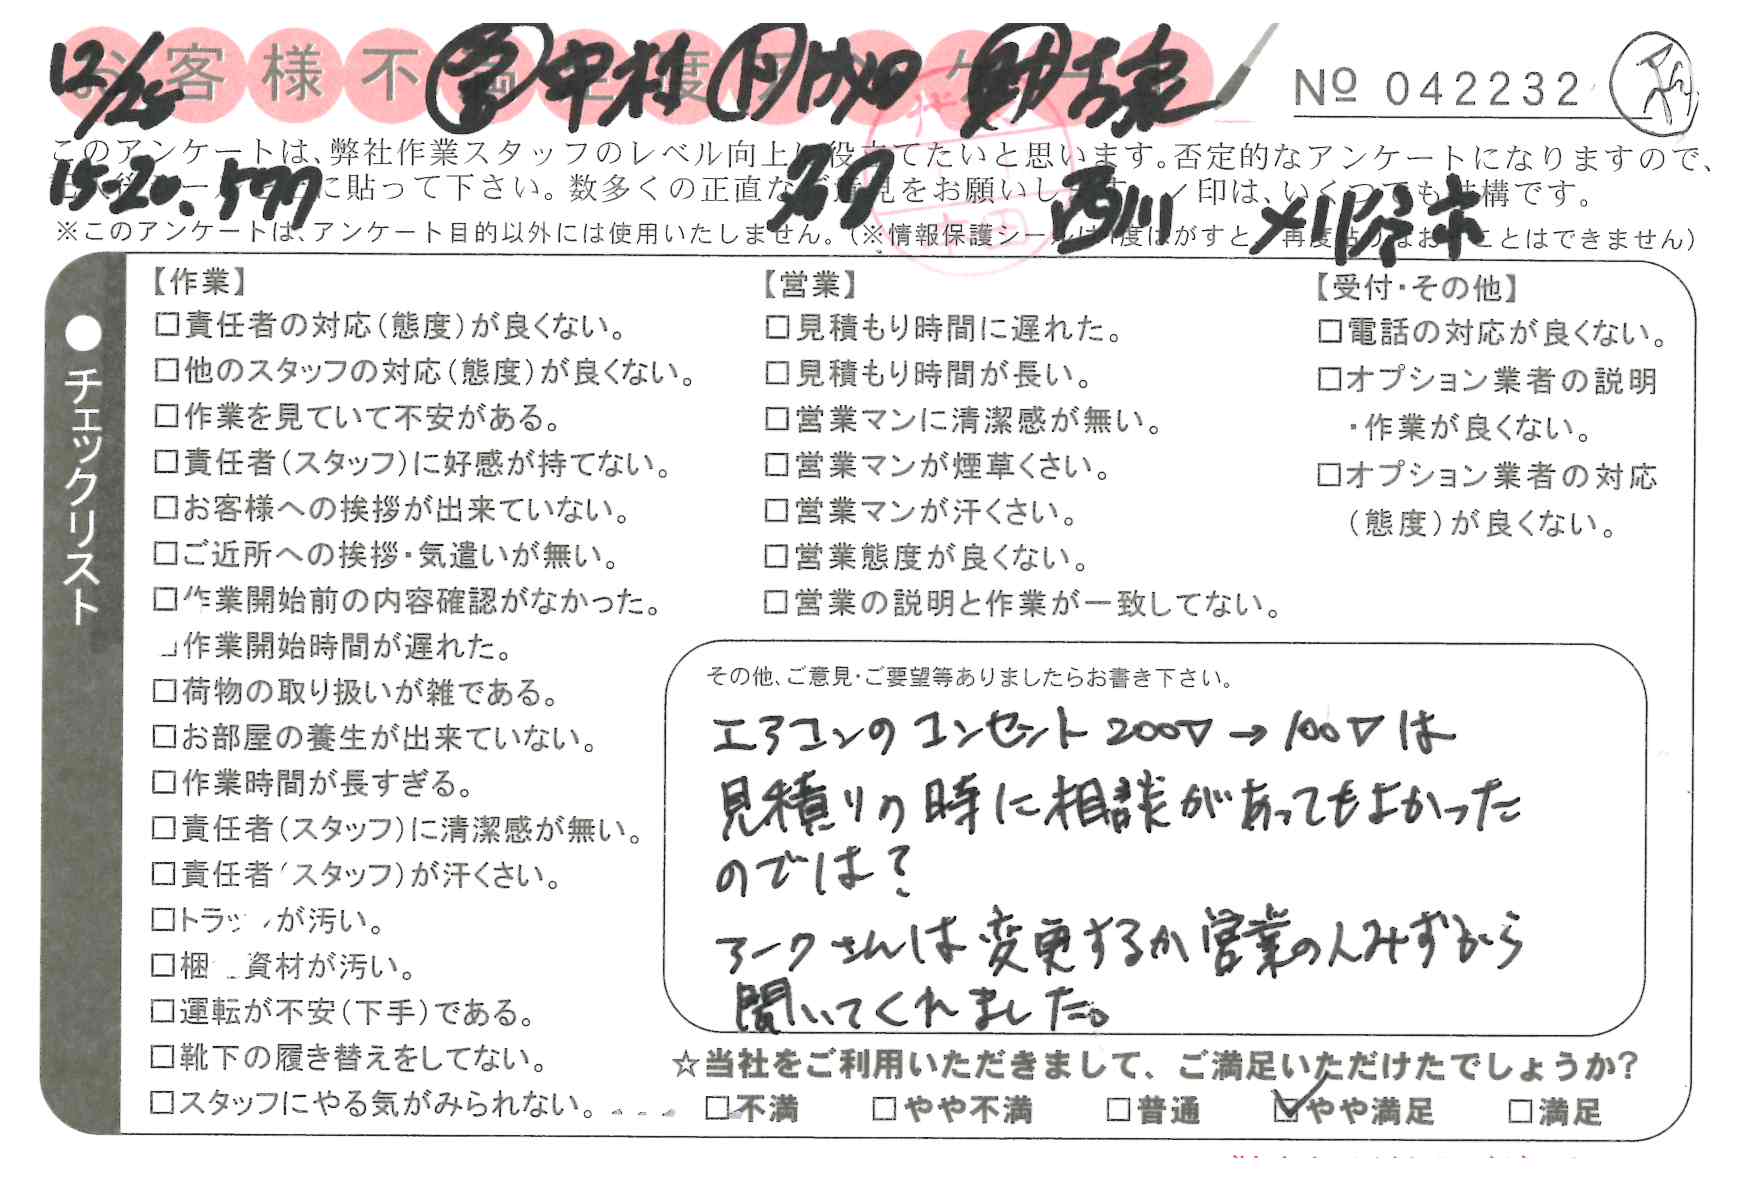 お客様不満足度アンケート
12/25 営 中村 助 吉家
№ 042232
このアンケートは、弊社作業スタッフのレベル向上に役立てたいと思います。否定的なアンケートになりますので、
15-20.577 に貼って下さい。数多くの正直なご意見をお願いします。✓印は、いくつでも結構です。
西川
※このアンケートは、アンケート目的以外には使用いたしません。(※情報保護シールは1度はがすと、再度貼りなおすことはできません)
●チェックリスト
【作業】
□責任者の対応(態度)が良くない。
□他のスタッフの対応(態度)が良くない。
□作業を見ていて不安がある。
□責任者(スタッフ)に好感が持てない。
□お客様への挨拶が出来ていない。
□ご近所への挨拶・気遣いが無い。
□作業開始前の内容確認がなかった。
□作業開始時間が遅れた。
□荷物の取り扱いが雑である。
□お部屋の養生が出来ていない。
□作業時間が長すぎる。
□責任者(スタッフ)に清潔感が無い。
□責任者(スタッフ)が汗くさい。
□トラックが汚い。
□梱包資材が汚い。
□運転が不安(下手)である。
□靴下の履き替えをしてない。
□スタッフにやる気がみられない。
【営業】
□見積もり時間に遅れた。
□見積もり時間が長い。
□営業マンに清潔感が無い。
□営業マンが煙草くさい。
□営業マンが汗くさい。
□営業態度が良くない。
□営業の説明と作業が一致してない。
【受付・その他】
□電話の対応が良くない。
□オプション業者の説明
・作業が良くない。
□オプション業者の対応
(態度)が良くない。
その他、ご意見・ご要望等ありましたらお書き下さい。
エアコンのコンセント 200V→100Vは
見積りの時に相談があってもよかった
のでは?
アークさんは変更するか営業の人みずから
聞いてくれました。
☆当社をご利用いただきまして、ご満足いただけたでしょうか?
□不満 □やや不満 □普通 ☑やや満足 □満足